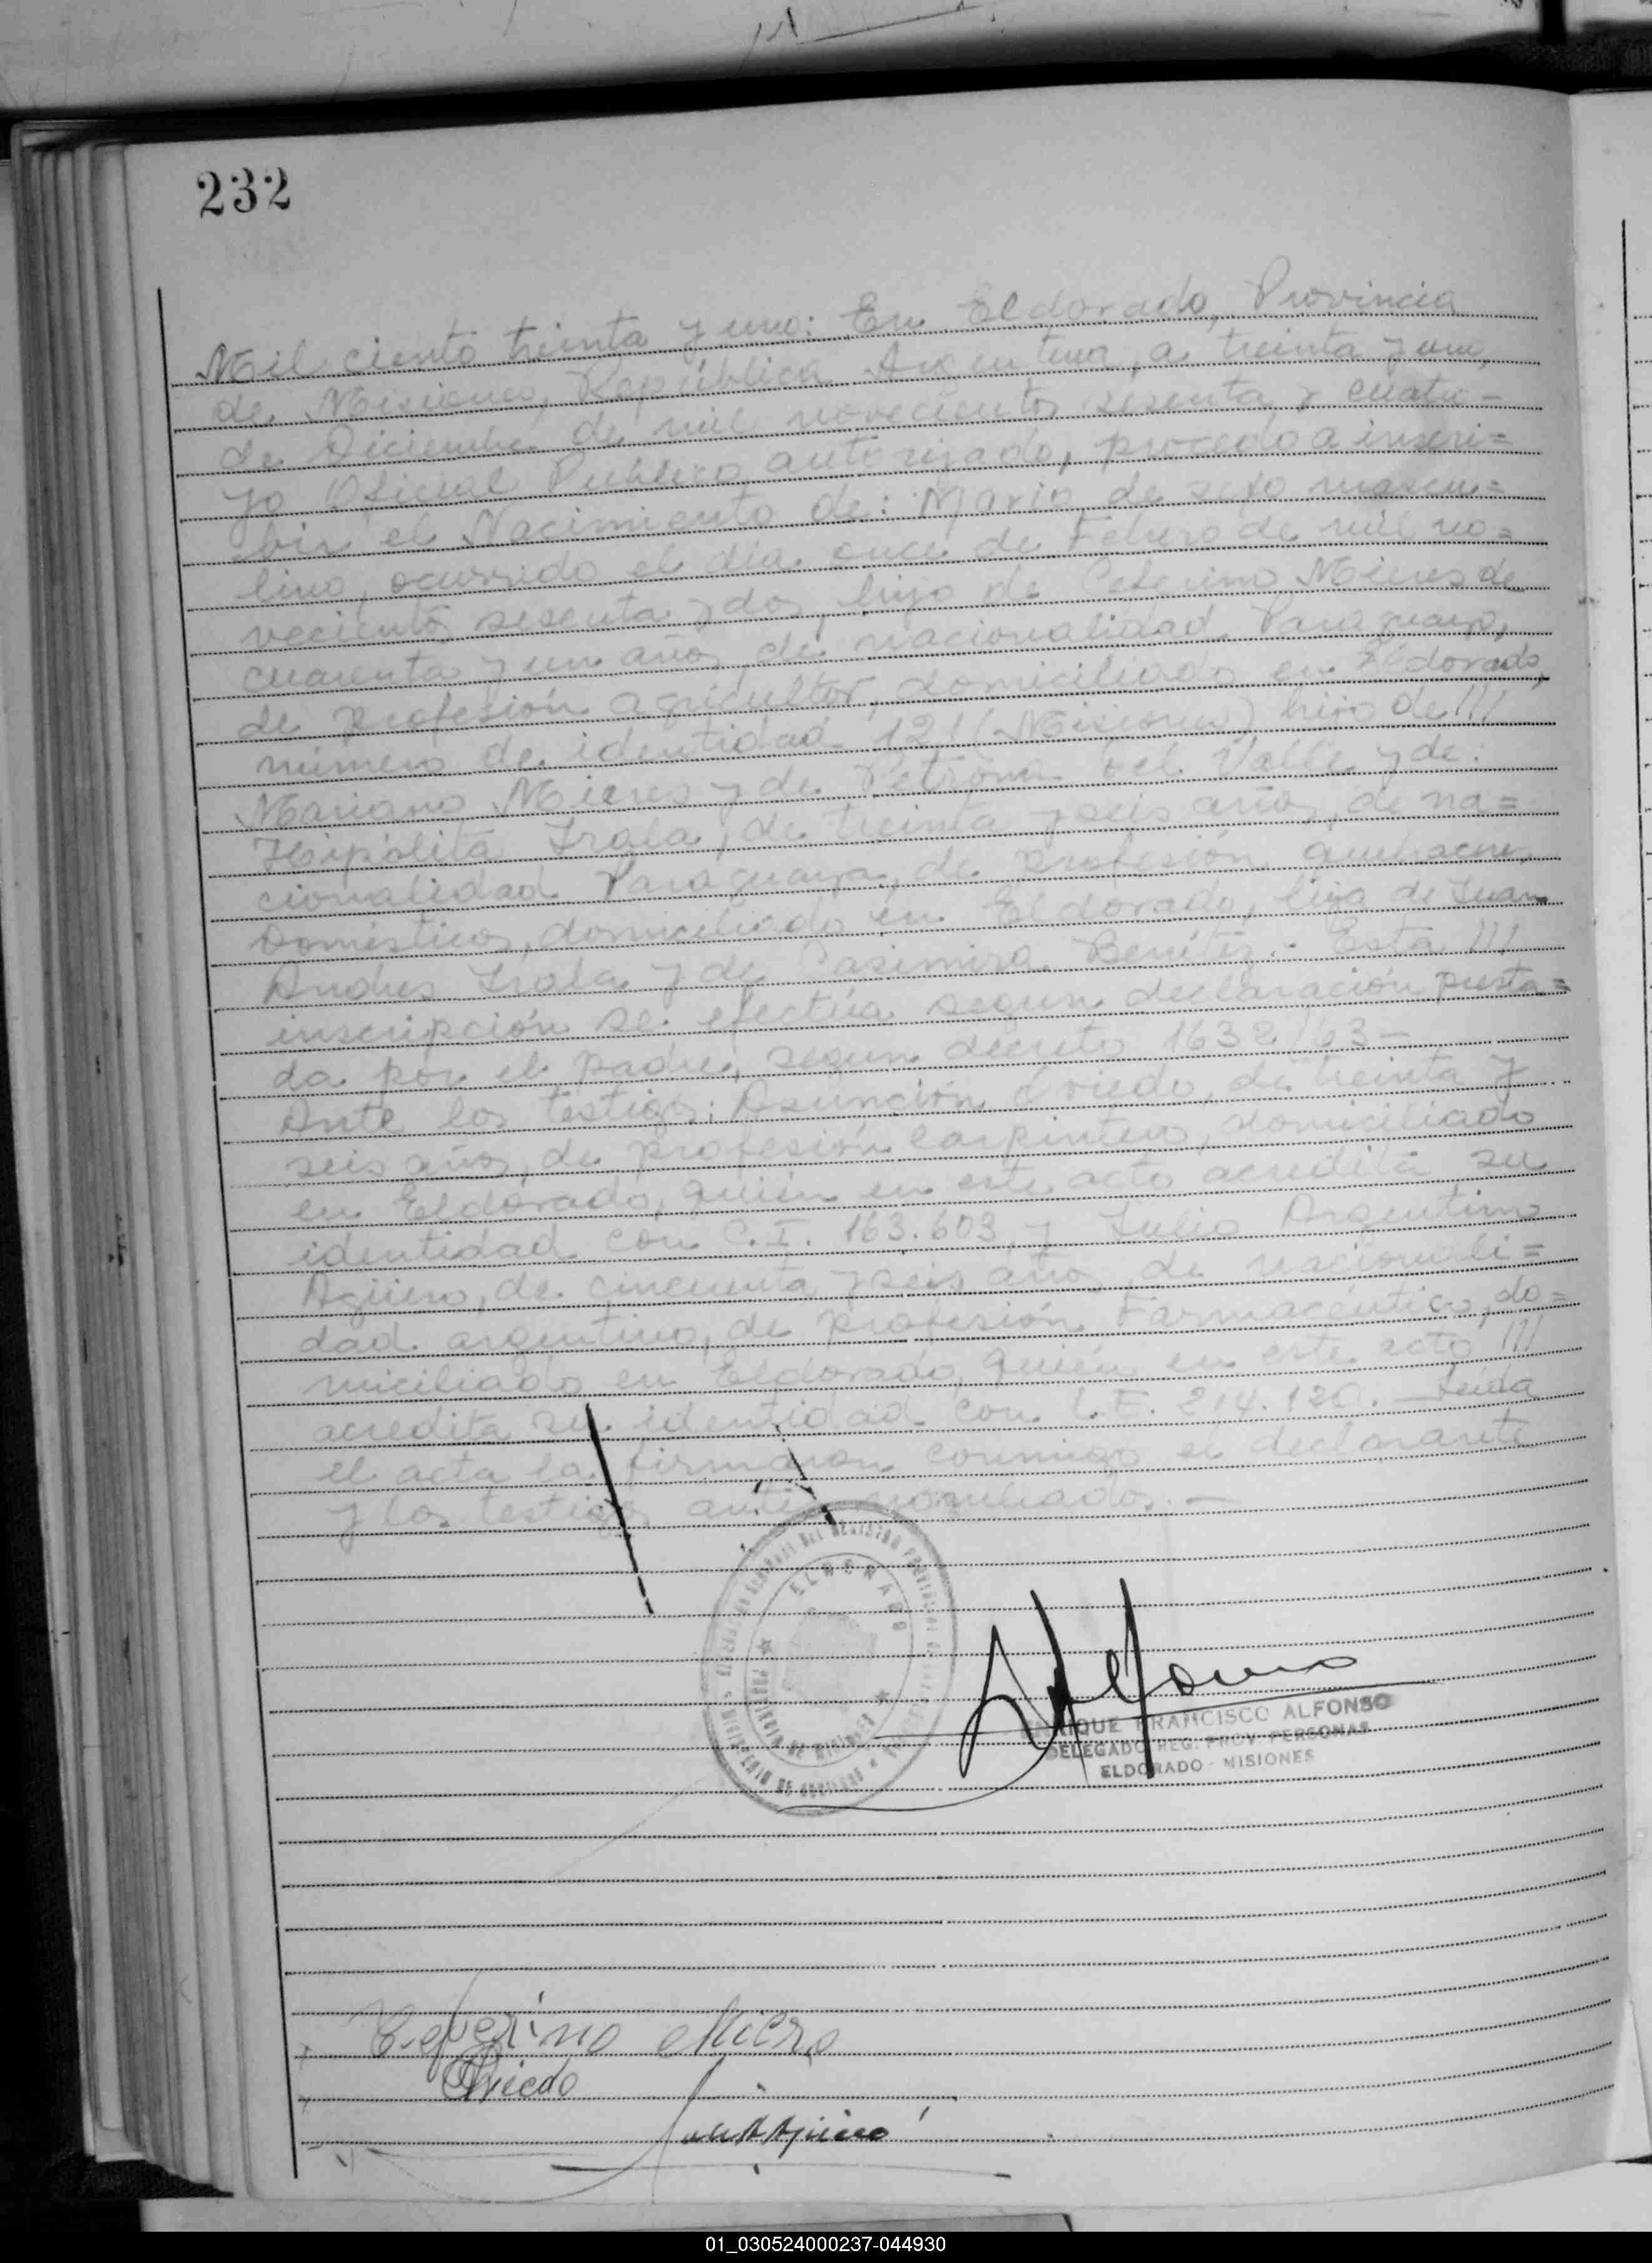 232
Mil ciento treinta y uno: En Eldorado, Provincia
de Misiones, República Argentina, a treinta y uno,
de Diciembre de mil novecientos sesenta y cuatro-
yo Oficial Público autorizado, procedo a inscri=
bir el Nacimiento de: Mario de sexo mascu=
lino, ocurrido el día once de Febrero de mil no=
vecientos sesenta y dos, hijo de Ceferino Mieres de
cuarenta y un años, de nacionalidad Paraguaya,
de profesión agricultor, domiciliado en Eldorado,
número de identidad 121 (Misiones) hijo de ///
Mariano Mieres y de Petrona del Valle y de:
Hipólita Irala, de treinta y seis años, de na=
cionalidad Paraguaya, de profesión quehaceres
Domésticos, domiciliado en Eldorado, hija de Juan
Andres Irala y de Casimira Benítez.- Esta ///
inscripción se efectúa segun declaración presta=
da por el padre, segun decreto 1632/63-
Ante los testigos: Asunción Oviedo, de treinta y
seis años, de profesión carpintero, domiciliado
en Eldorado, quién en este acto acredita su
identidad con C.I. 163.603 y Julio Argentino
Agüero, de cincuenta y seis años, de nacionali=
dad argentino, de profesión Farmacéutico, do=
miciliado en Eldorado, quién en este acto ///
acredita su identidad con L.E. 214.120.- Leída
el acta la firmaron conmigo el declarante
y los testigos antes nombrados.-
ELDORADO
PROVINCIA DE MISIONES
Alfonso
ENRIQUE FRANCISCO ALFONSO
DELEGADO REG. PROV. PERSONAS
ELDORADO - MISIONES
Ceferino Mieres
Oviedo
01_030524000237-044930